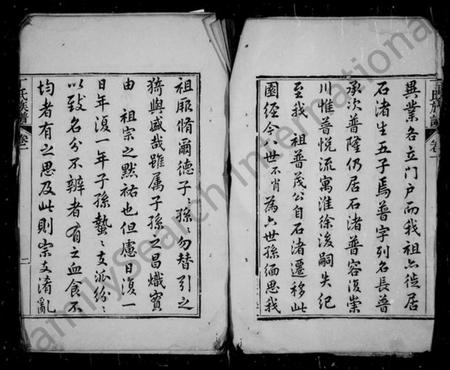 異業各立門户而我祖六徙居
石渚生五子焉普字列名長普
承次普隆仍居石渚普容復崇
川惟普悦流寓淮徐後嗣失紀
至我祖普茂公自石渚遷移此
園經今八世不肖為六世孫緬思我
祖聿脩爾德子〻孫〻勿替引之
猗與盛哉雖属子孫之昌熾實
由祖宗之黙祐也但慮日復一
日年復一年子孫蟄〻支派紛〻
以致名分不辨者有之血食不
均者有之思及此則宗支淆亂
氏族譜
卷一
二
FamilySearch International